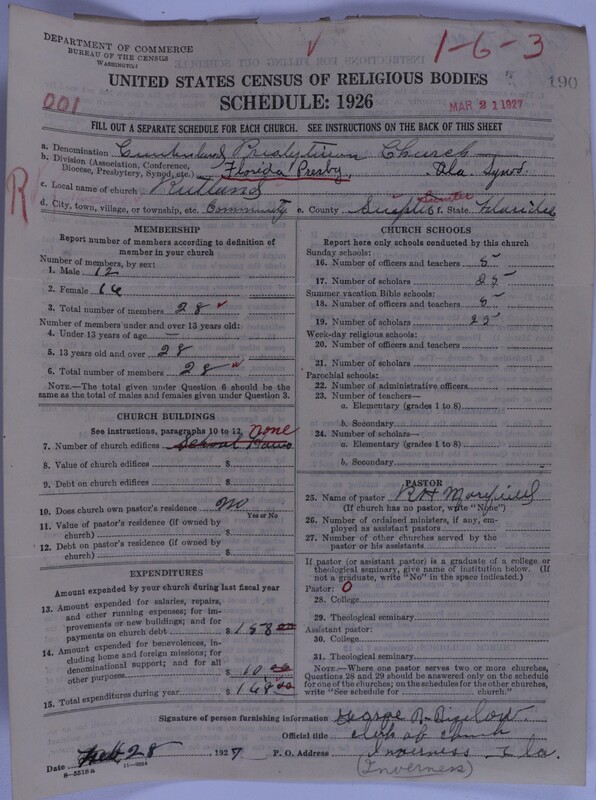 DEPARTMENT OF COMMERCE
BUREAU OF THE CENSUS
WASHINGTON
1-6-3
UNITED STATES CENSUS OF RELIGIOUS BODIES
190
SCHEDULE: 1926
001
MAR 21 1927
FILL OUT A SEPARATE SCHEDULE FOR EACH CHURCH. SEE INSTRUCTIONS ON THE BACK OF THIS SHEET
a. Denomination Cumberland Presbyterian Church
b. Division (Association, Conference, Diocese, Presbytery, Synod, etc.) Florida Presby. Ala. Synod.
c. Local name of church Rutland
R
d. City, town, village, or township, etc. Community e. County Sumpter Sumter f. State Florida
MEMBERSHIP
Report number of members according to definition of member in your church
Number of members, by sex:
1. Male 12
2. Female 16
3. Total number of members 28
Number of members under and over 13 years old:
4. Under 13 years of age —
5. 13 years old and over 28
6. Total number of members 28
NOTE.—The total given under Question 6 should be the same as the total of males and females given under Question 3.
CHURCH BUILDINGS
See instructions, paragraphs 10 to 12 none
7. Number of church edifices School
8. Value of church edifices $
9. Debt on church edifices $
10. Does church own pastor's residence No
Yes or No
11. Value of pastor's residence (if owned by church) $
12. Debt on pastor's residence (if owned by church) $
EXPENDITURES
Amount expended by your church during last fiscal year
13. Amount expended for salaries, repairs, and other running expenses; for improvements or new buildings; and for payments on church debt $ 158 00
14. Amount expended for benevolences, including home and foreign missions; for denominational support; and for all other purposes $ 10 00
15. Total expenditures during year $ 168 00
CHURCH SCHOOLS
Report here only schools conducted by this church
Sunday schools:
16. Number of officers and teachers 5
17. Number of scholars 25
Summer vacation Bible schools:
18. Number of officers and teachers 5
19. Number of scholars 25
Week-day religious schools:
20. Number of officers and teachers
21. Number of scholars
Parochial schools:
22. Number of administrative officers
23. Number of teachers—
a. Elementary (grades 1 to 8)
b. Secondary
24. Number of scholars—
a. Elementary (grades 1 to 8)
b. Secondary
PASTOR
25. Name of pastor R H
(If church has no pastor, write "None")
26. Number of ordained ministers, if any, employed as assistant pastors
27. Number of other churches served by the pastor or his assistants
If pastor (or assistant pastor) is a graduate of a college or theological seminary, give name of institution below. (If not a graduate, write "No" in the space indicated.)
Pastor: 0
28. College
29. Theological seminary
Assistant pastor:
30. College
31. Theological seminary
NOTE.—Where one pastor serves two or more churches, Questions 28 and 29 should be answered only on the schedule for one of the churches; on the schedules for the other churches, write "See schedule for church."
Signature of person furnishing information George R. Bigelow.
Official title Clerk of Church
Date Feb. 28, 1927 P. O. Address Inverness Fla.
8—5518a 11—9894
(Inverness)